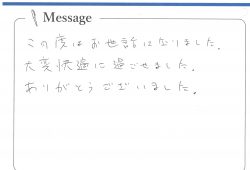 Message
この度はお世話になりました。
大変快適に過ごせました。
ありがとうございました。